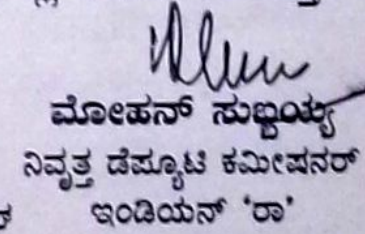 ಮೋಹನ್ ಸುಬ್ಬಯ್ಯ
ನಿವೃತ್ತ ಡೆಪ್ಯೂಟಿ ಕಮೀಷನರ್
ಇಂಡಿಯನ್ 'ರಾ'